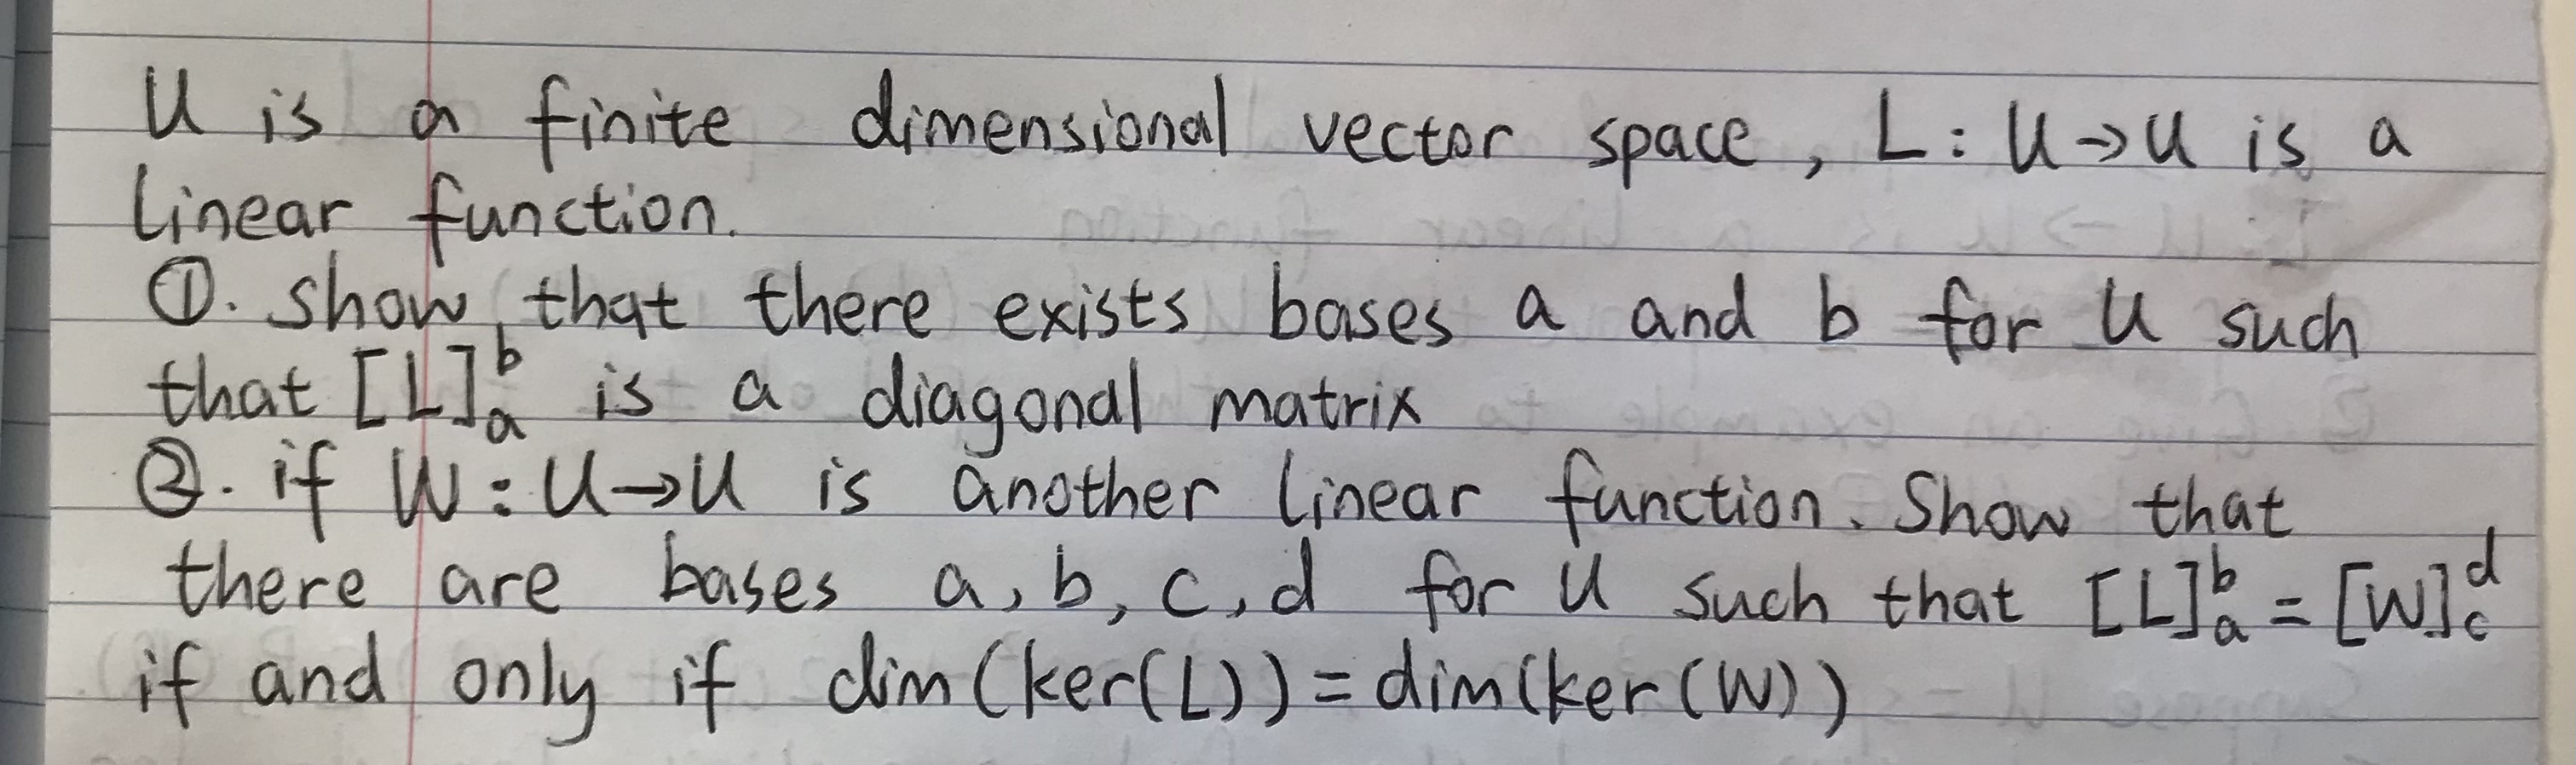 U is a finite dimensional vector space, L: U→U is a
linear function.
①. Show that there exists bases a and b for U such
that [L]ₐᵇ is a diagonal matrix
②. if W: U→U is another linear function. Show that
there are bases a, b, c, d for U such that [L]ₐᵇ = [W]_c^d
if and only if dim(ker(L)) = dim(ker(W))